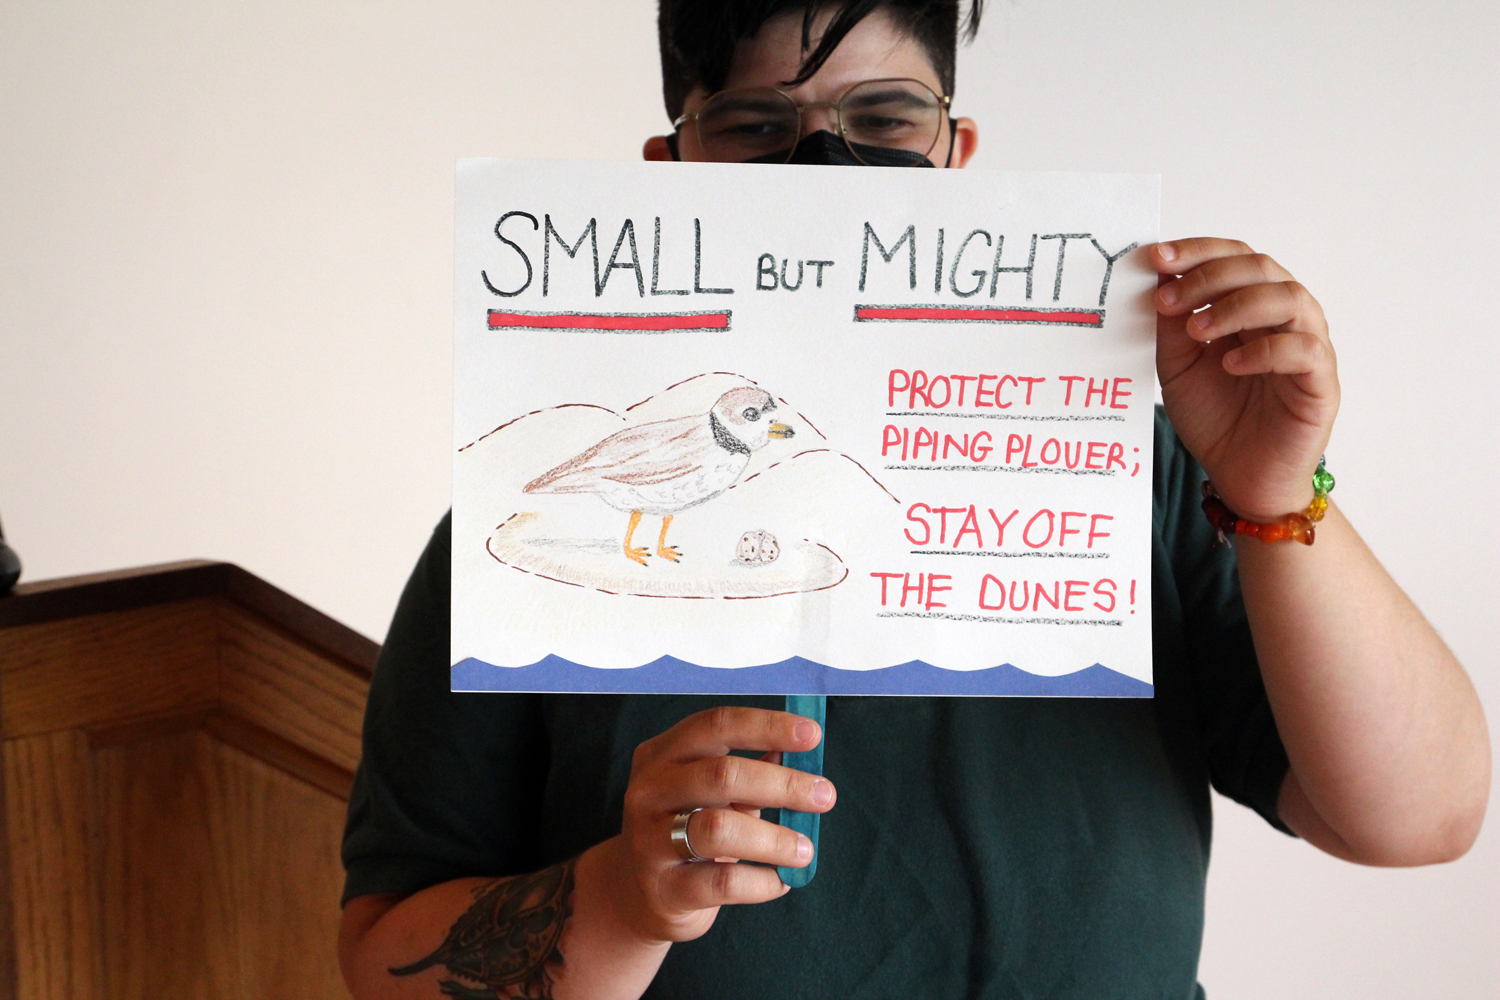 SMALL BUT MIGHTY
PROTECT THE
PIPING PLOVER;
STAY OFF
THE DUNES!